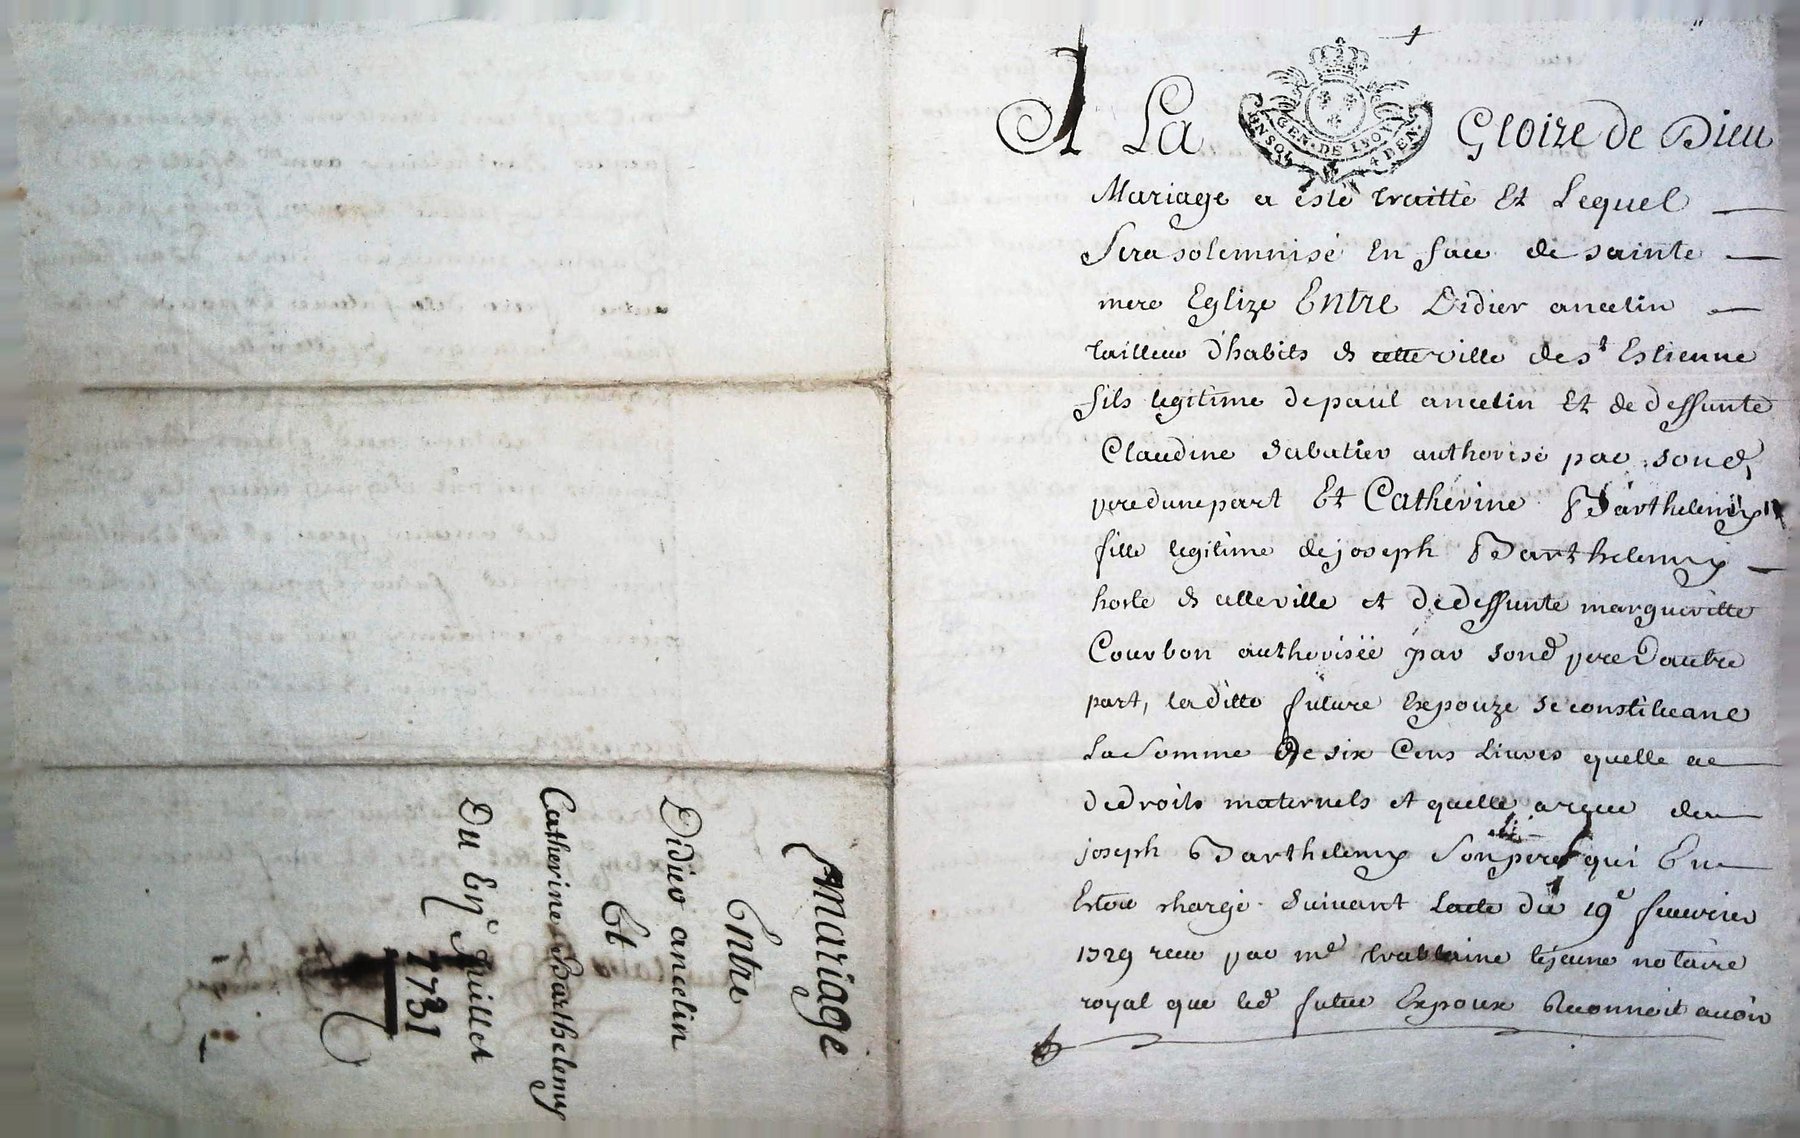 A La Gloire de Dieu
GEN. DE LYON
4 DEN.
Mariage a esté traitté Et Lequel
Sera solemnisé En face de sainte
mere Eglize Entre Didier ancelin
tailleur d'habits de cette ville de st Estienne
fils legitime de paul ancelin Et de deffunte
Claudine Sabatier authorisé par sond
pere dune part Et Catherine Barthelemy
fille legitime de joseph Barthelemy
hoste de cette ville et de deffunte margueritte
Courbon authorisée par sond pere dautre
part, laditte future Expouze se constituant
La Somme de six Cens Livres quelle a
de droits maternels et quelle a reçue de
joseph Barthelemy Son pere qui En
Estoit chargé Suivant Lacte du 19e feuvrier
1729 receu par me lejeune notaire
royal que led futur Expoux Reconnoit avoir
mariage
Entre
Didier ancelin
Et
Catherine Barthelemy
Du En Juillet
1731